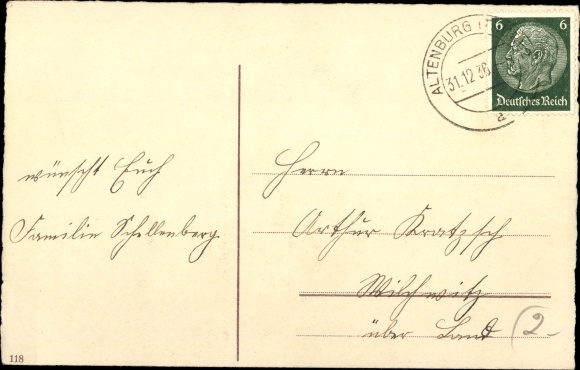 ALTENBURG (TH
31.12.36
a
6 6
Deutsches Reich
wünscht Euch
Familie Schellenberg.
Herrn
Arthur Kratzsch
Wilchwitz
über Land
2-
118